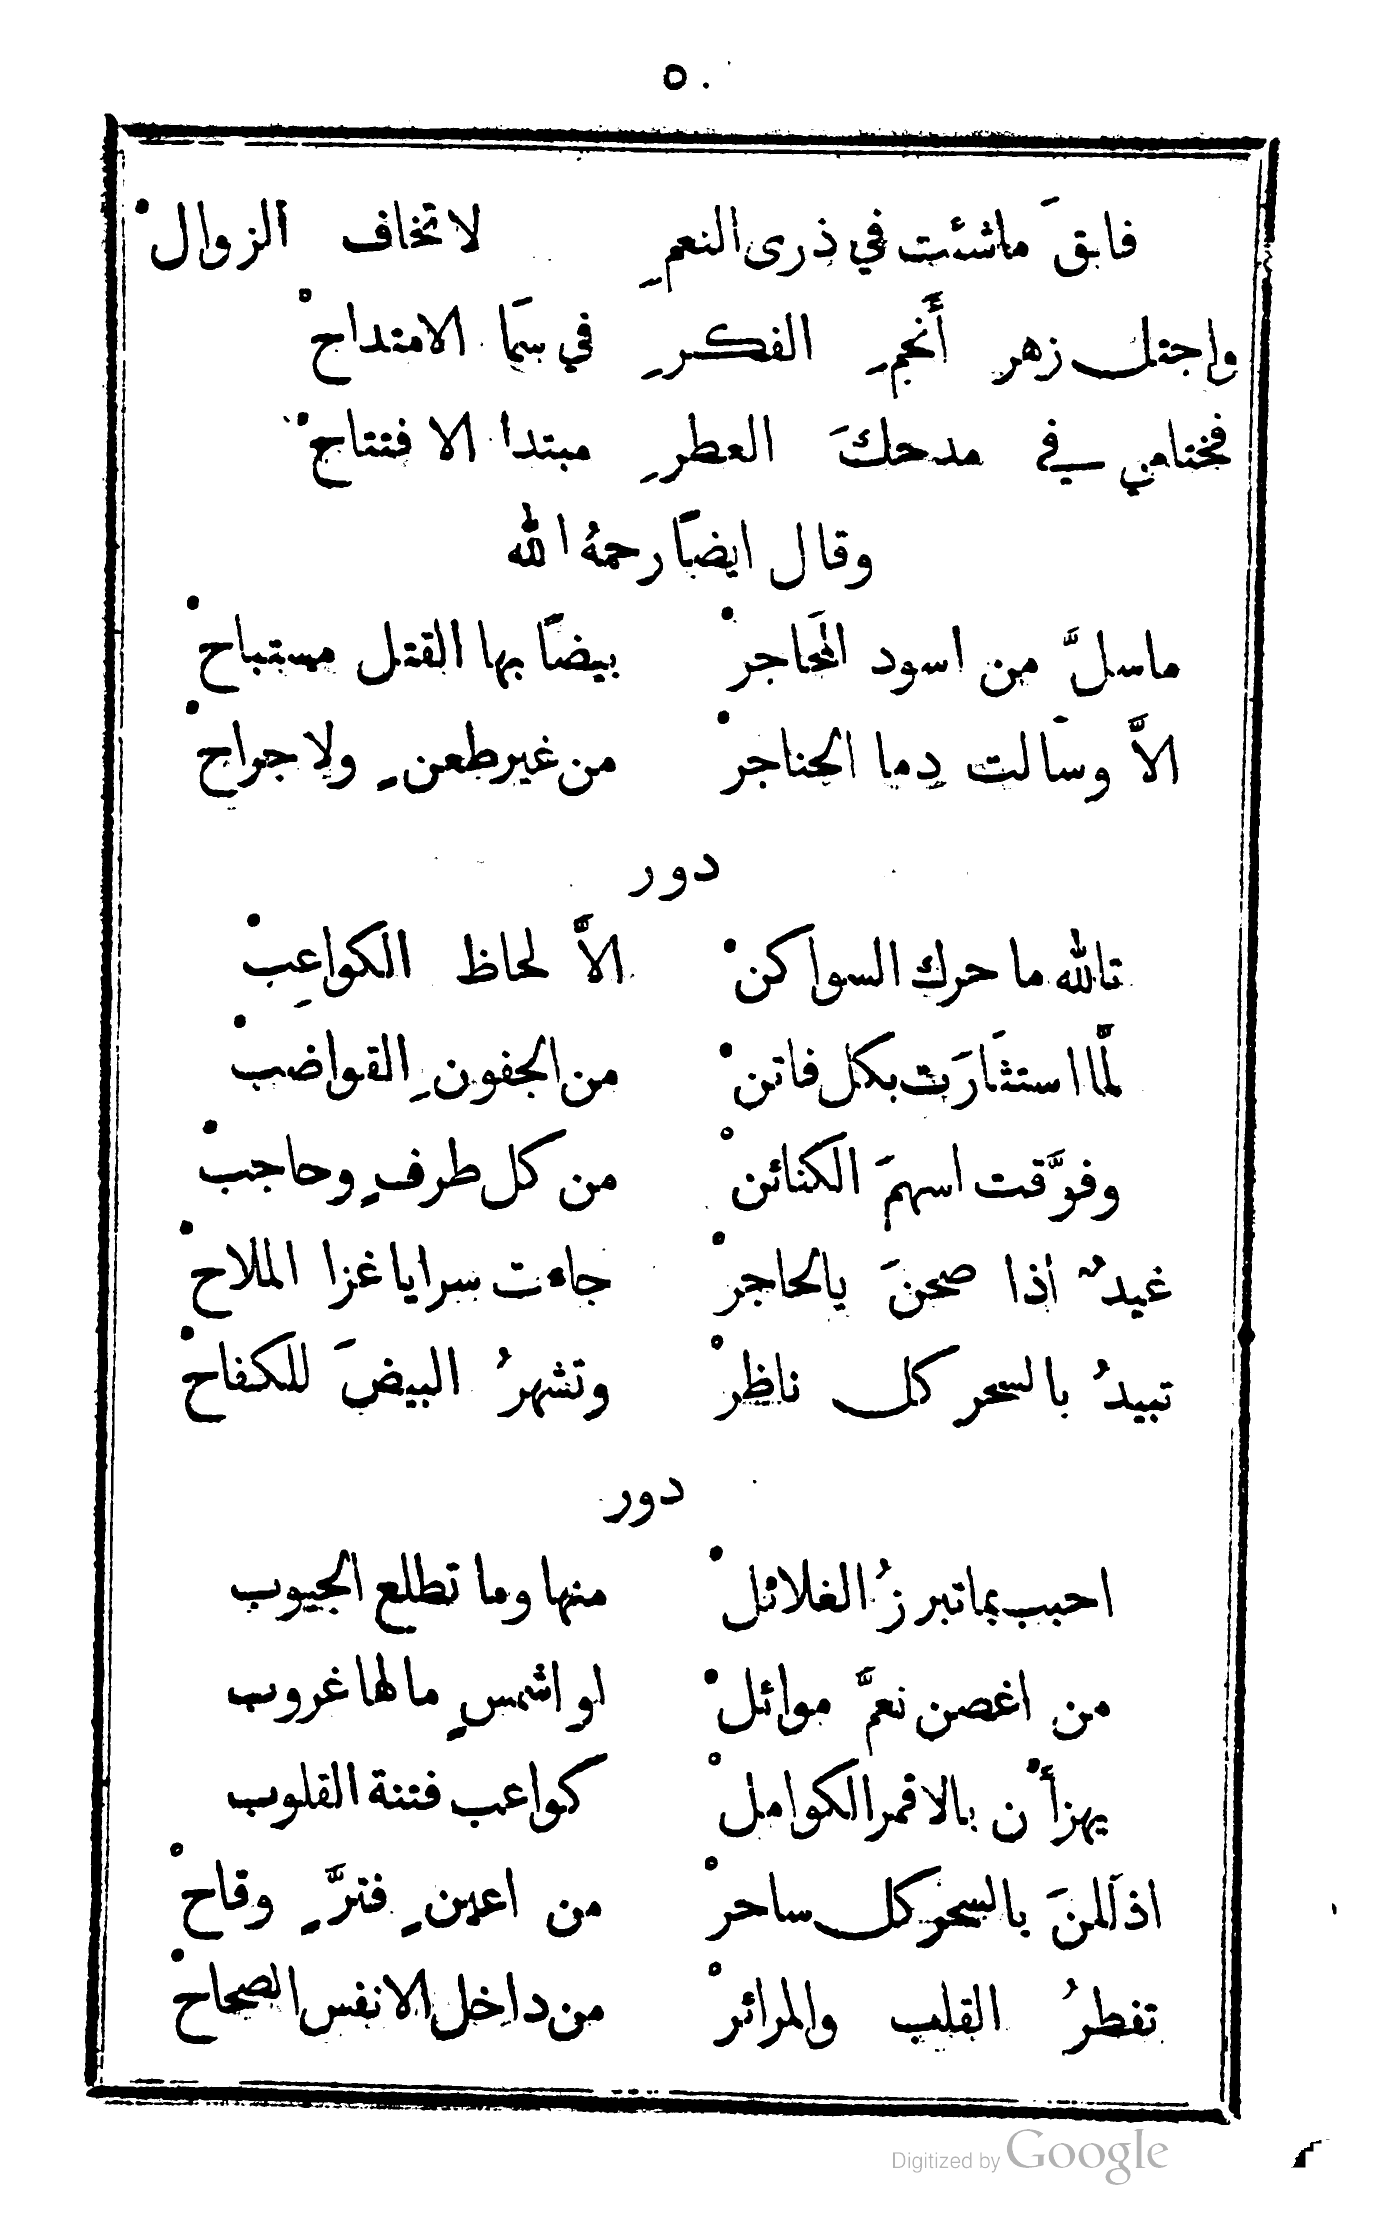 ٥٠
فابقَ ماشئت في ذرى النعمِ لا تخاف الزوالْ
واجتل زهر أَنجمِ الفكرِ في سمَا الامتداحْ
فختامي في مدحكَ العطرِ مبتدا الافتتاحْ
وقال ايضاً رحمهُ الله
ماسلَّ من اسود المَحاجرْ بيضاً بها القتل مستباحْ
الاَّ وسالت دما الحناجرْ من غير طعنٍ ولا جراحْ
دور
تالله ما حرك السواكنْ الاَّ لحاظ الكواعِبْ
لمَّا استثَارَت بكل فاتنْ من الجفونِ القواضبْ
وفوَّقت اسهمَ الكنائنْ من كل طرفٍ وحاجبْ
غيدٌ اذا صحنَ يالحاجرْ جاءت سرايا غزا الملاحْ
تبيدُ بالسحر كل ناظرْ وتشهرُ البيضَ للكفاحْ
دور
احبب بماتبرزُ الغلائلْ منها وما تطلع الجيوب
من اغصن نعمَّ موائلْ او اشمسٍ مالها غروب
يهزأْن بالاقمر الكواملْ كواعب فتنة القلوب
اذ اَلمنَ بالسحر كل ساحرْ من اعينٍ فترٍّ وقاحْ
تفطرُ القلب والمرائرْ من داخل الانفس الصحاحْ
Digitized by Google